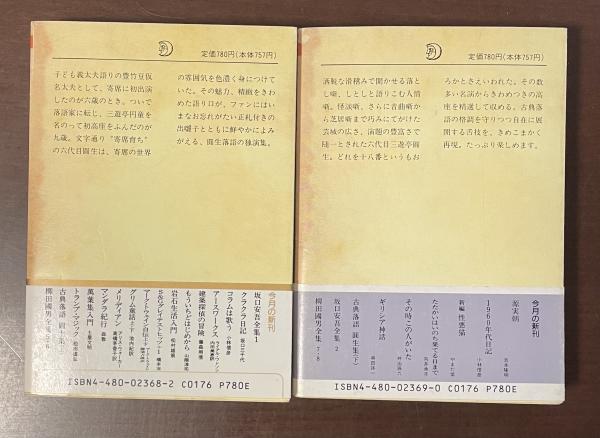 定価780円(本体757円)
子ども義太夫語りの豊竹豆仮
名太夫として、寄席に初出演
したのが六歳のとき。ついで
落語家に転じ、三遊亭円童を
名のって初高座をふんだのが
九歳。文字通り“寄席育ち”
の六代目圓生は、寄席の世界
の雰囲気を色濃く身につけて
いた。その魅力、精緻をきわ
めた語り口が、ファンにはい
まなお忘れがたい正札付きの
出囃子とともに鮮やかによみ
がえる、圓生落語の独演集。
今月の新刊
坂口安吾全集1
クラクラ日記 坂口三千代
コラムは歌う 小林信彦
アースワークス
建築探偵の冒険 藤森照信
もういちどはじめから
岩石生活入門
グリム童話 上・下 池内紀訳
メリディアン
マンダラ紀行 森敦
萬葉集入門 土屋文明
トランプ・マジック 松田道弘
古典落語 圓生集(上)
柳田國男全集5・6
ISBN4-480-02368-2 C0176 P780E
定価780円(本体757円)
洒脱な滑稽みで聞かせる落と
し噺、しとしと語りこむ人情
噺、怪談噺、さらに音曲噺か
ら芝居噺まで巧みにてがけた
芸域の広さ、演題の豊富さで
随一とされた六代目三遊亭圓
生。どれを十八番というもお
ろかとさえいわれた。その数
多い名演からきわめつきの高
座を精選して収める。古典落
語の格調を守りつつ自在に展
開する舌技を、きめこまかく
再現。たっぷり楽しめます。
今月の新刊
源実朝 吉本隆明
1960年代日記 小林信彦
新編 性悪猫 やまだ紫
たたかいはいのち果てる日まで
その時この人がいた
ギリシア神話 串田孫一
古典落語 圓生集(下)
坂口安吾全集2
柳田國男全集7・8
ISBN4-480-02369-0 C0176 P780E